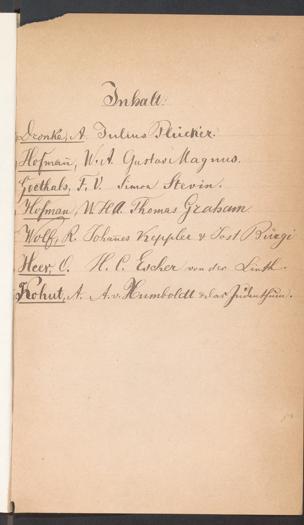 Inhalt:
Dronke, A. Julius Plücker.
Hofmann, W. A. Gustav Magnus.
Goethals, F. V. Simon Stevin.
Hofman, W. H. A. Thomas Graham
Wolf, R. Johannes Keppler & Jost Bürgi
Heer, O. H. C. Escher von der Linth.
Kohut, A. A. v. Humboldt & das Judenthum.